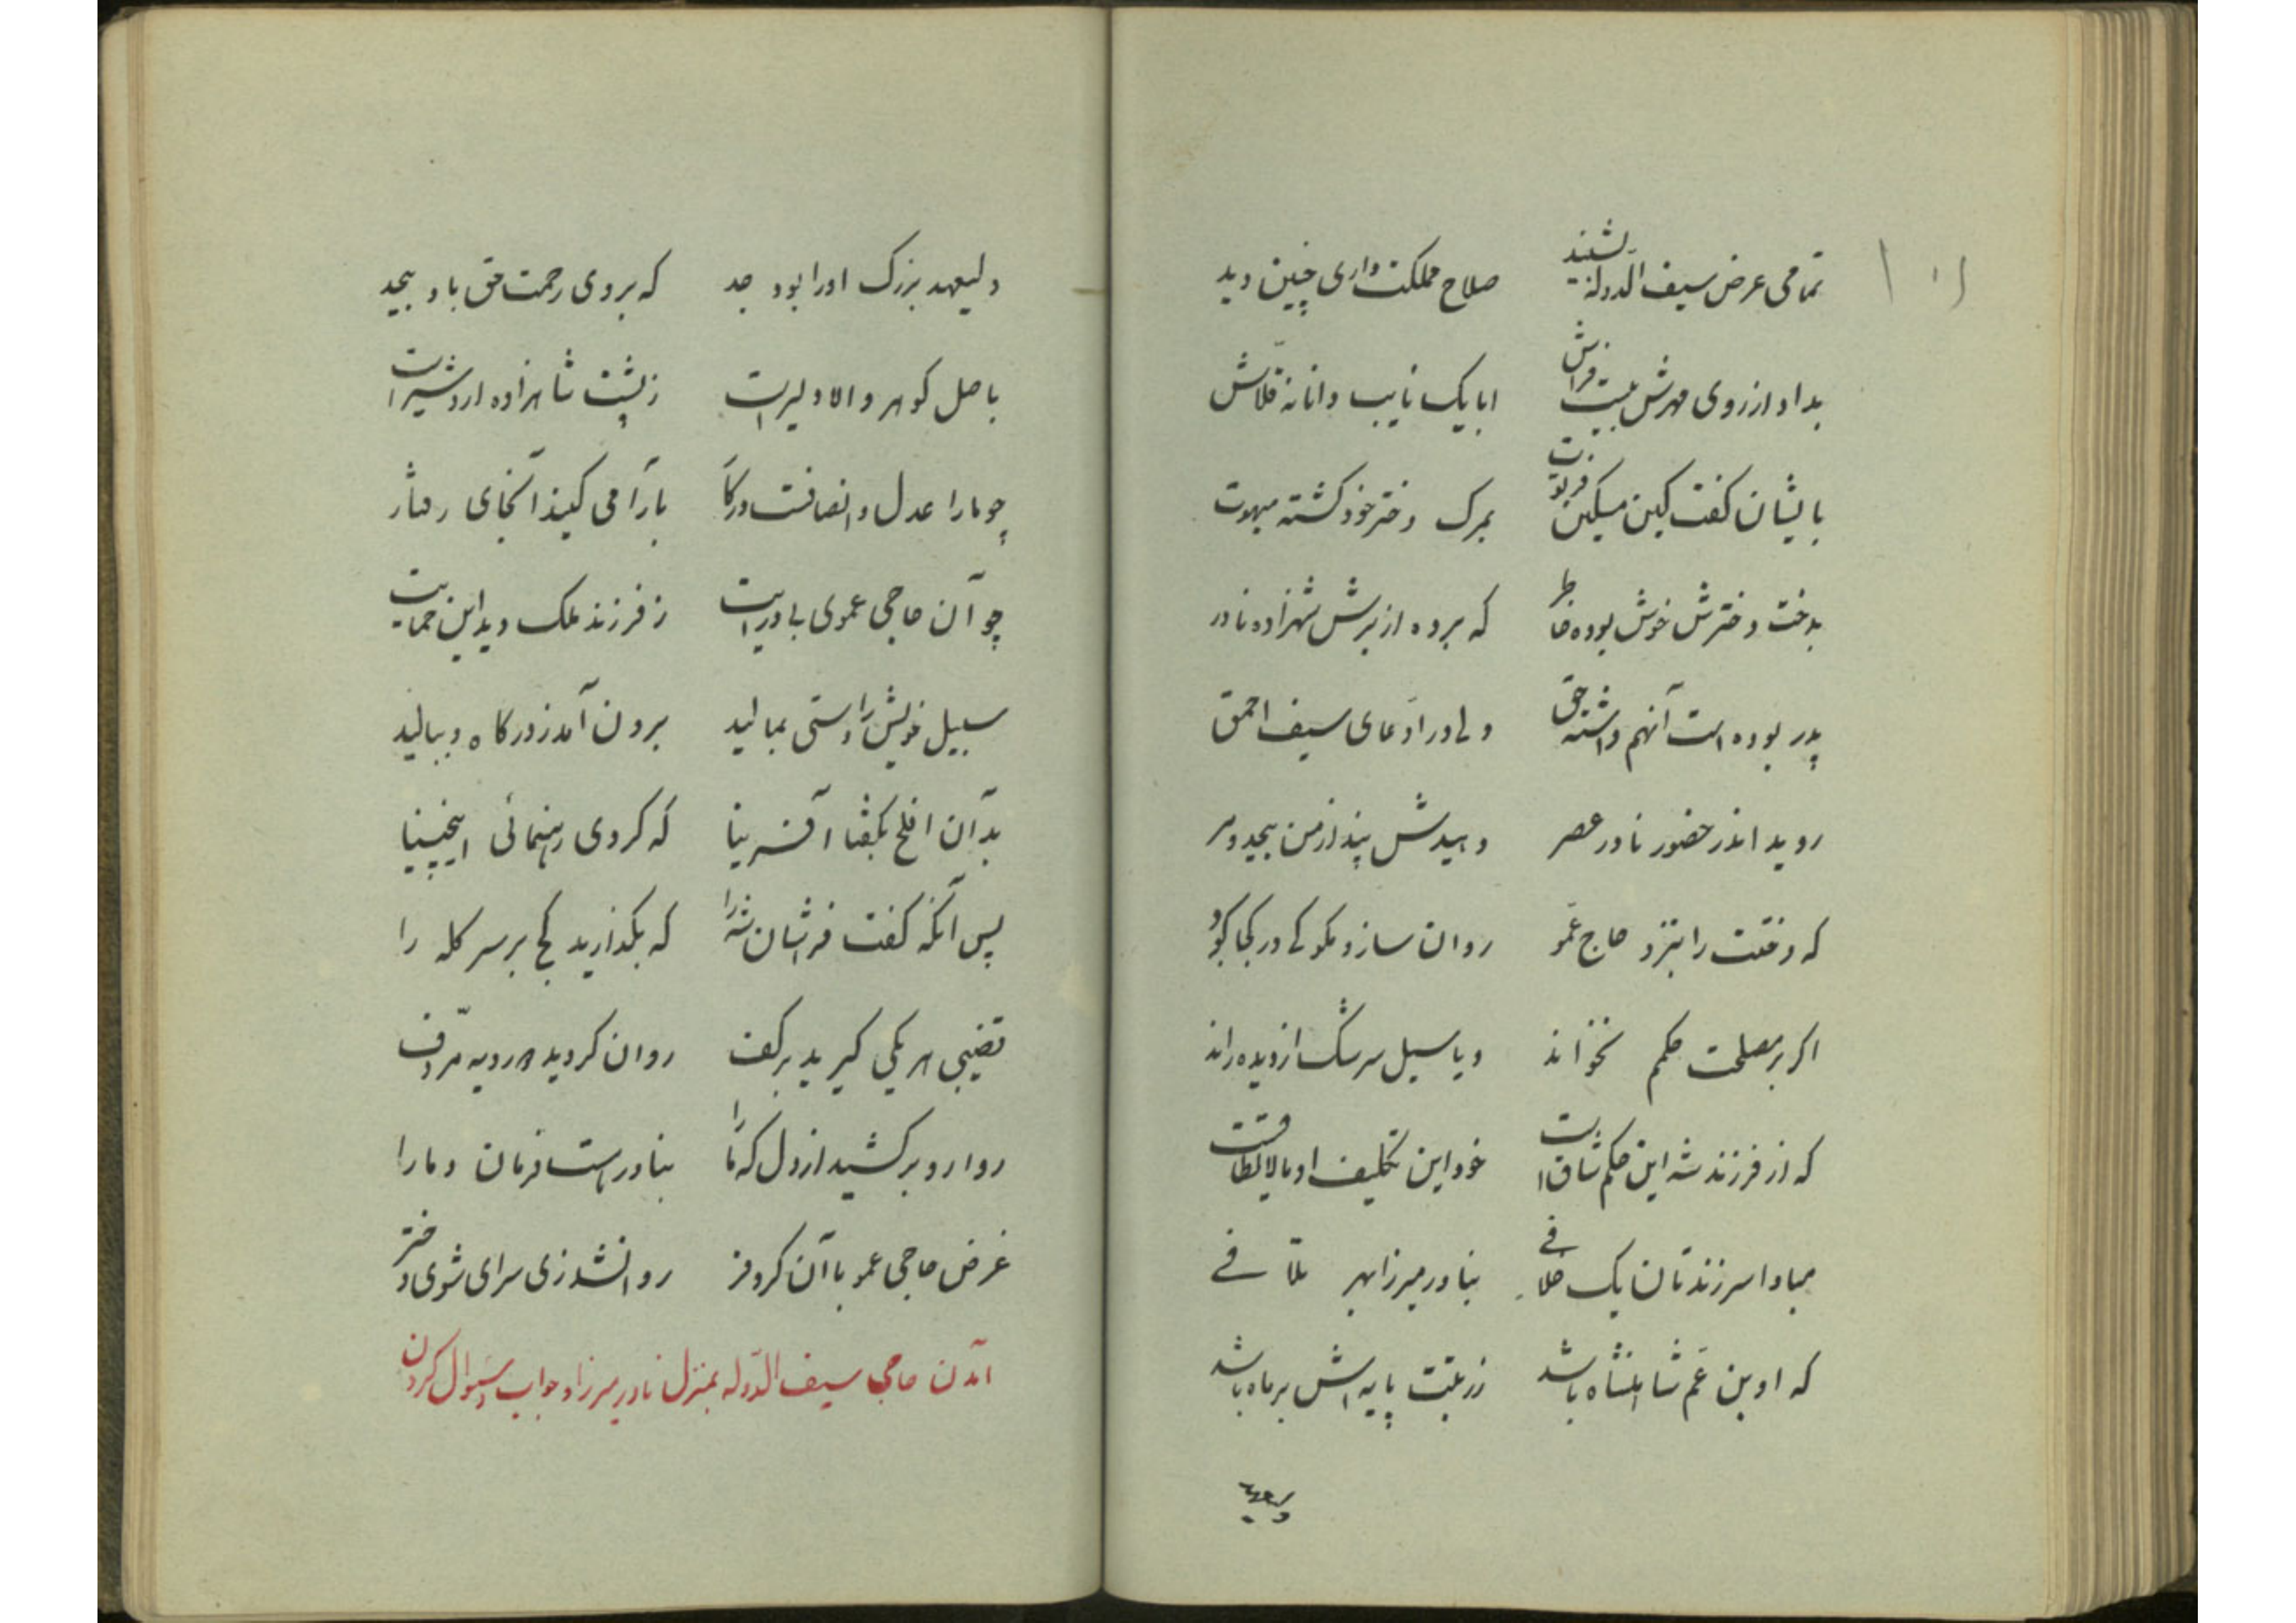 تمامی عرض سیف الدوله بشنید صلاح مملکت داری چنین دید
بداد از روی مهرش بیست فراش ابا یک نایب دانا نه قلاش
بایشان گفت کین مسکین فرتوت بمرک دختر خود کشته مبهوت
بدخت دخترش خوش بوده خاطر که برده از برش شهزاده نادر
پدر بوده است آنهم داشته حق ولی در ادعای سیف احمق
روید اندر حضور نادر عصر دهیدش پند از من بیحد و مر
که دختت را بنزد حاج عمو روان ساز و مکو کی در کجا کو
اکر بر مصلحت حکم نخواند و یا سیل سرشک از دیده راند
که از فرزند شه این حکم شاق است خود این تکلیف او مالایطاقست
مبادا سر زند تان یک خلافی بنادر میرزا بهر تلافی
که او بن عم شاهنشاه باشد ز رتبت پایه اش بر ماه باشد
ولیعهد
ولیعهد بزرک او را بود جد که بر وی رحمت حق باد بیحد
باصل کوهر والا دلیر است ز پشت شاهزاده اردشیر است
چو ما را عدل و انصافست در کار بآرامی کنید آنجای رفتار
چو آن حاجی عموی با درایت ز فرزند ملک دید این حمایت
سبیل خویش را دستی بمالید برون آمد ز درکاه و ببالید
بدآن افلح بکفتا آفرینا که کردی رهنمائی اینچنینا
پس آنکه کفت فراشان شه را که بکذارید کج بر سر کله را
قضیبی هر یکی کیرید بر کف روان کردید هر رویه مردف
روا رو بر کشید از دل که ما را بنادر هست فرمان و مارا
غرض حاجی عمو با آن کر و فر روانشد زی سرای شوی دختر
آمدن حاجی سیف الدوله بمنزل نادر میرزا و جواب و سئوال کردن